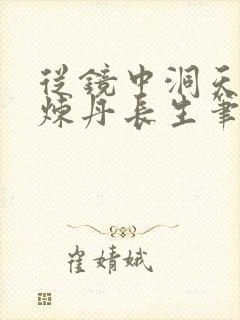 從鏡中洞天
煉丹長生筆
崔婧娥